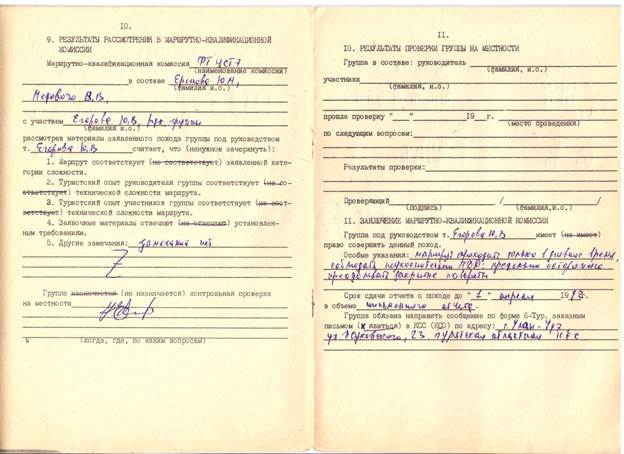 10.
9. РЕЗУЛЬТАТЫ РАССМОТРЕНИЯ В МАРШРУТНО-КВАЛИФИКАЦИОННОЙ
КОМИССИИ
Маршрутно-квалификационная комиссия
(наименование комиссии)
в составе Ершова Ю.Н,
В.В.
с участием Егорова Ю.В, рук. группы
(фамилия и.о.)
рассмотрев материалы заявленного похода группы под руководством
т. Егорова Ю.В считает, что (ненужное зачеркнуть):
1. Маршрут соответствует (не соответствует) заявленной кате-
гории сложности.
2. Туристский опыт руководителя группы соответствует (не со-
ответствует) технической сложности маршрута.
3. Туристский опыт участников группы соответствует (не соот-
ветствует) технической сложности маршрута.
4. Заявочные материалы отвечают (не отвечают) установлен-
ным требованиям.
5. Другие замечания: замечаний нет
Группе назначается (не назначается) контрольная проверка
на местности
(когда, где, по каким вопросам)
11.
10. РЕЗУЛЬТАТЫ ПРОВЕРКИ ГРУППЫ НА МЕСТНОСТИ
Группа в составе: руководитель
(фамилия, и.о.)
участники
(фамилия, и.о.)
прошла проверку " " 19 г.
(место проведения)
по следующим вопросам:
Результаты проверки:
Проверяющий / /
(подпись) (фамилия, и.о.)
11. ЗАКЛЮЧЕНИЕ МАРШРУТНО-КВАЛИФИКАЦИОННОЙ КОМИССИИ
Группа под руководством т. Егорова Ю.В имеет (не имеет)
право совершить данный поход.
Особые указания: маршрут проходить только в время,
соблюдать
преодолевать
Срок сдачи отчета о походе до "1" апреля 19
в объеме письменного отчета.
Группа обязана направить сообщение по форме 6-Тур, заказным
письмом (явиться) в КСС (КСО) по адресу: г. Улан-Удэ
ул. 23. Бурятская областная КСС